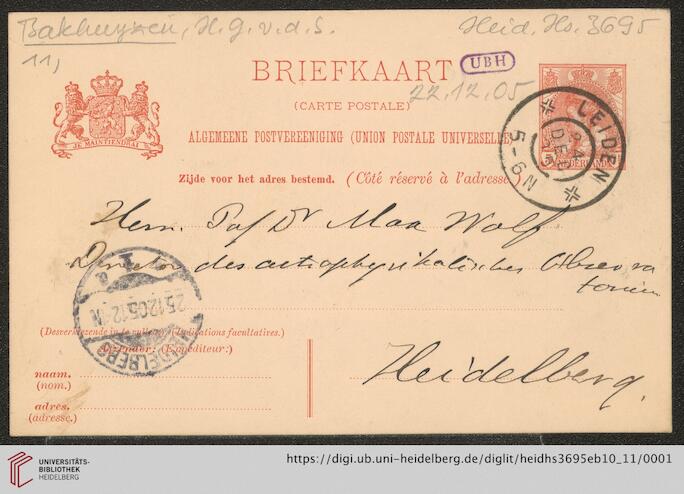 Bakhuyzen, H. G. v. d. S. Heid. Hs. 3695
11,
UBH
BRIEFKAART
22.12.05
(CARTE POSTALE)
ALGEMEENE POSTVEREENIGING (UNION POSTALE UNIVERSELLE)
Zijde voor het adres bestemd. (Côté réservé à l'adresse)
JE MAINTIENDRAI
LEIDEN
24
DEC
5-6N
Herrn Prof Dr Max Wolf
Director des astrophysikalisches Observa
torium
25.12.05.12-1N
HEIDELBERG
(Desverkiezende in te vullen.) (Indications facultatives.)
Afzender: (Expéditeur:)
naam.
(nom.)
Heidelberg.
adres.
(adresse.)
UNIVERSITÄTS-
BIBLIOTHEK
HEIDELBERG
https://digi.ub.uni-heidelberg.de/diglit/heidhs3695eb10_11/0001